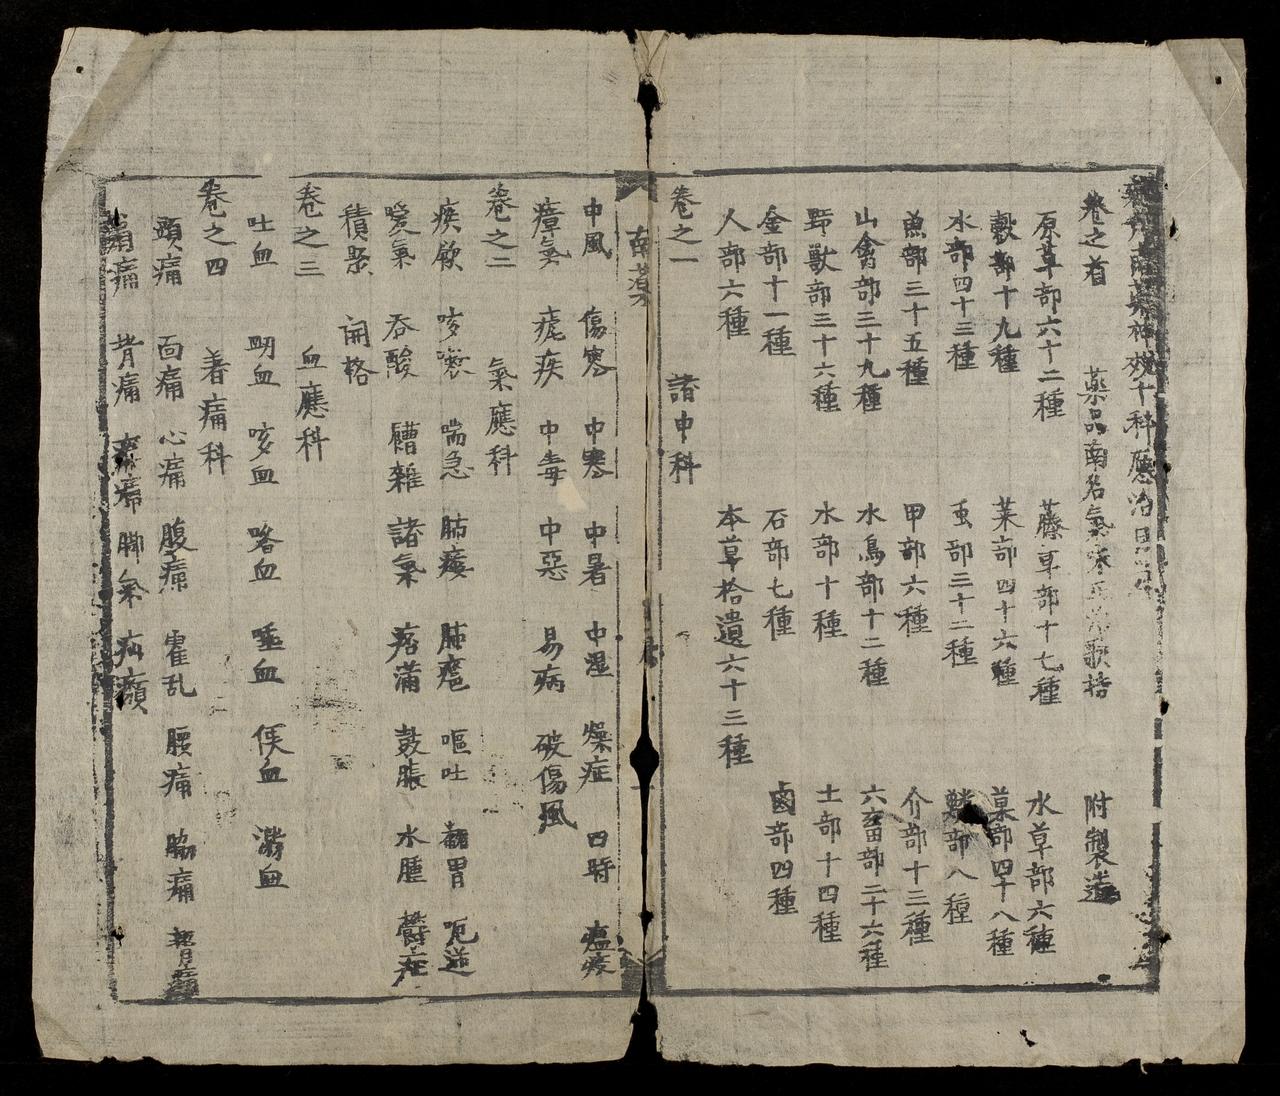 新刊南藥神效十科應治目录
卷之首 藥品南名氣味正治歌括 附製造
原草部六十二種 藤草部十七種 水草部六種
穀部十九種 菜部四十六種 菓部四十八種
水部四十三種 虫部三十二種 部八種
魚部三十五種 甲部六種 介部十三種
山禽部三十九種 水鳥部十二種 六畜部二十六種
野獸部三十六種 水部十種 土部十四種
金部十一種 石部七種 鹵部四種
人部六種 本草拾遺六十三種
卷之一 諸中科
南藥
中風 傷寒 中寒 中暑 中湿 燥症 四時 瘟疫
瘴氣 瘧疾 中毒 中惡 易病 破傷風
卷之二 氣應科
痰飲 咳嗽 喘急 肺痿 肺瘡 嘔吐 翻胃 呃逆
噯氣 吞酸 嘈雜 諸氣 痞滿 鼓脹 水腫 欝症
積聚 関格
卷之三 血應科
吐血 衂血 咳血 咯血 唾血 溺血
卷之四 着痛科
頭痛 面痛 心痛 腹痛 霍乱 腰痛 脇痛
背痛 脚氣 疝㿗